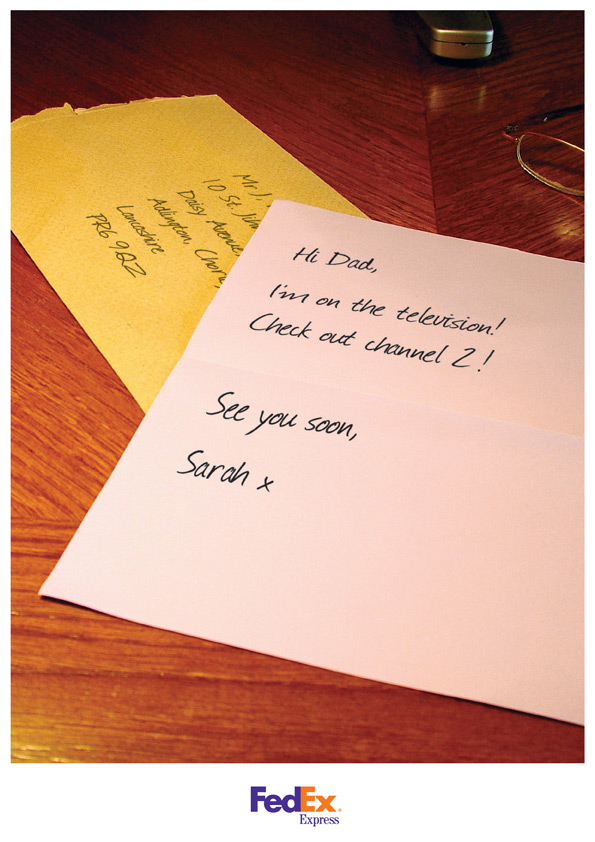 Mr J.
10 St.
Daisy Avenue,
Adlington,
Lancashire
PR6 9QZ
Hi Dad,
I'm on the television!
Check out channel 2!
See you soon,
Sarah x
FedEx®
Express